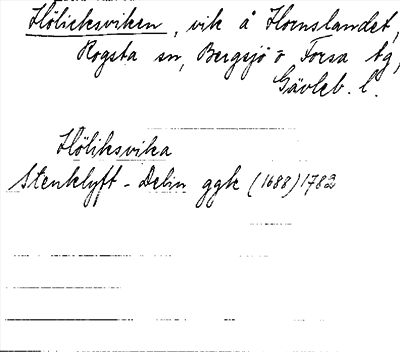 Hölicksviken, vik å Hornslandet,
Rogsta sn, Bergsjö o Forsa tg,
Gävleb. l.
Höliksvika
Stenklyft-Delin ggk (1688) 1782